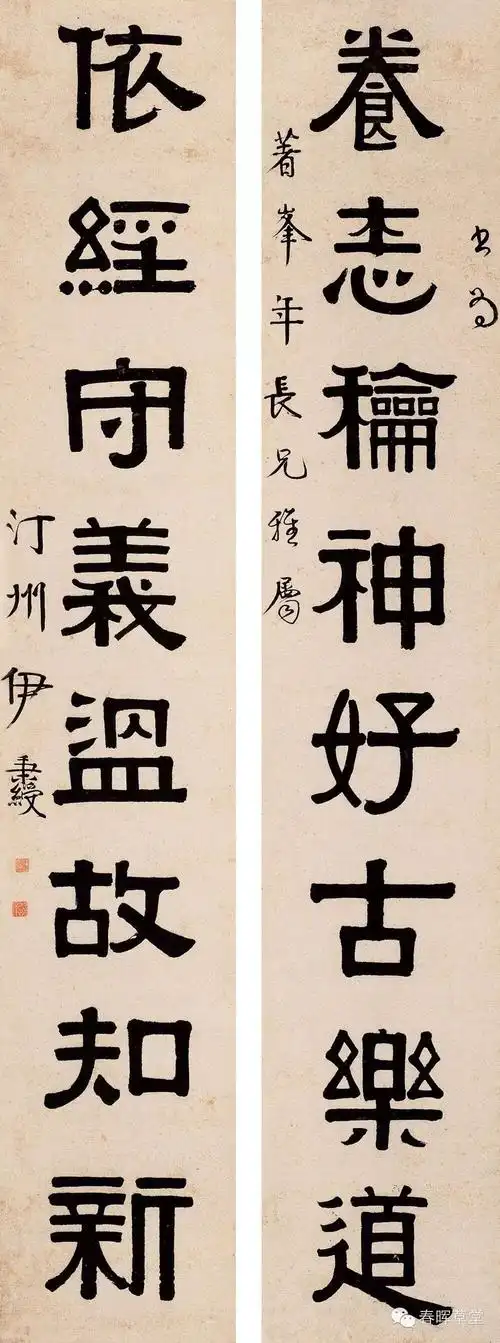 書為
養志龢神好古樂道
著峯年長兄雅屬
依經守義溫故知新
汀州伊秉綬
春晖草堂